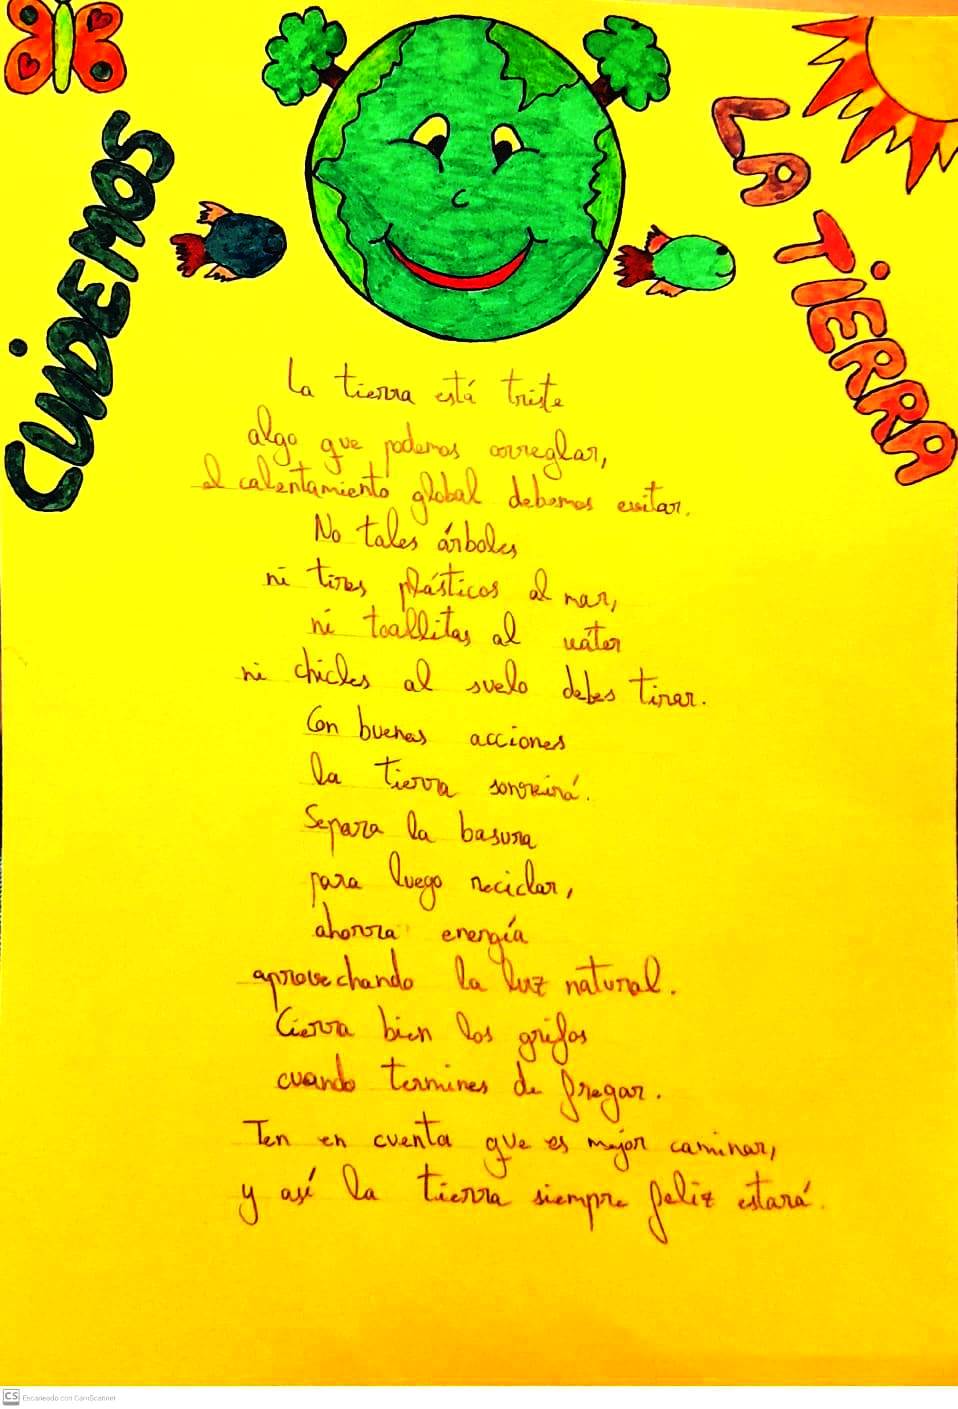 CUIDEMOS
LA TIERRA
La tierra está triste
algo que podemos arreglar,
el calentamiento global debemos evitar.
No tales árboles
ni tires plásticos al mar,
ni toallitas al váter
ni chicles al suelo debes tirar.
Con buenas acciones
la tierra sonreirá.
Separa la basura
para luego reciclar,
ahorra energía
aprovechando la luz natural.
Cierra bien los grifos
cuando termines de fregar.
Ten en cuenta que es mejor caminar,
y así la tierra siempre feliz estará.
CS Escaneado con CamScanner